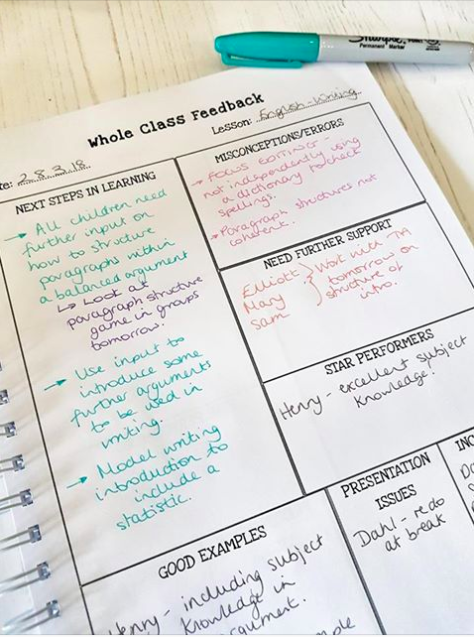 Sharpie
Permanent Marker
Whole Class Feedback
Lesson: English-Writing
te: 28.3.18
NEXT STEPS IN LEARNING
→ All children need
further input on
how to structure
paragraphs within
a balanced argument
↳ Look at
paragraph structure
game in groups
tomorrow.
→ Use input to
introduce some
further arguments
to be used in
writing.
→ Model writing
introduction to
include a
statistic.
MISCONCEPTIONS/ERRORS
→ FOCUS EDITING -
not independently using
a dictionary to check
spellings.
→ Paragraph structures not
coherent.
NEED FURTHER SUPPORT
Elliott
Mary
Sam
} Work with TA
tomorrow on
structure of
intro.
STAR PERFORMERS
Henry - excellent subject
knowledge.
GOOD EXAMPLES
Henry - including subject
knowledge in
argument.
PRESENTATION
ISSUES
Dahl - redo
at break
INC